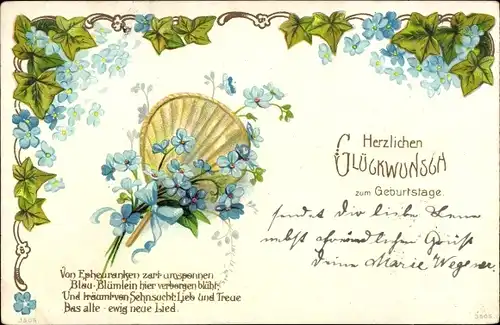 Herzlichen
Glückwunsch
zum Geburtstage.
sendet Dir liebe Lene
nebst freundlichen Gruß
Deine Marie Wegener
Von Epheuranken zart umsponnen
Blau-Blümlein hier verborgen blüht,
Und träumt von Sehnsucht, Lieb und Treue
Das alte - ewig neue Lied.